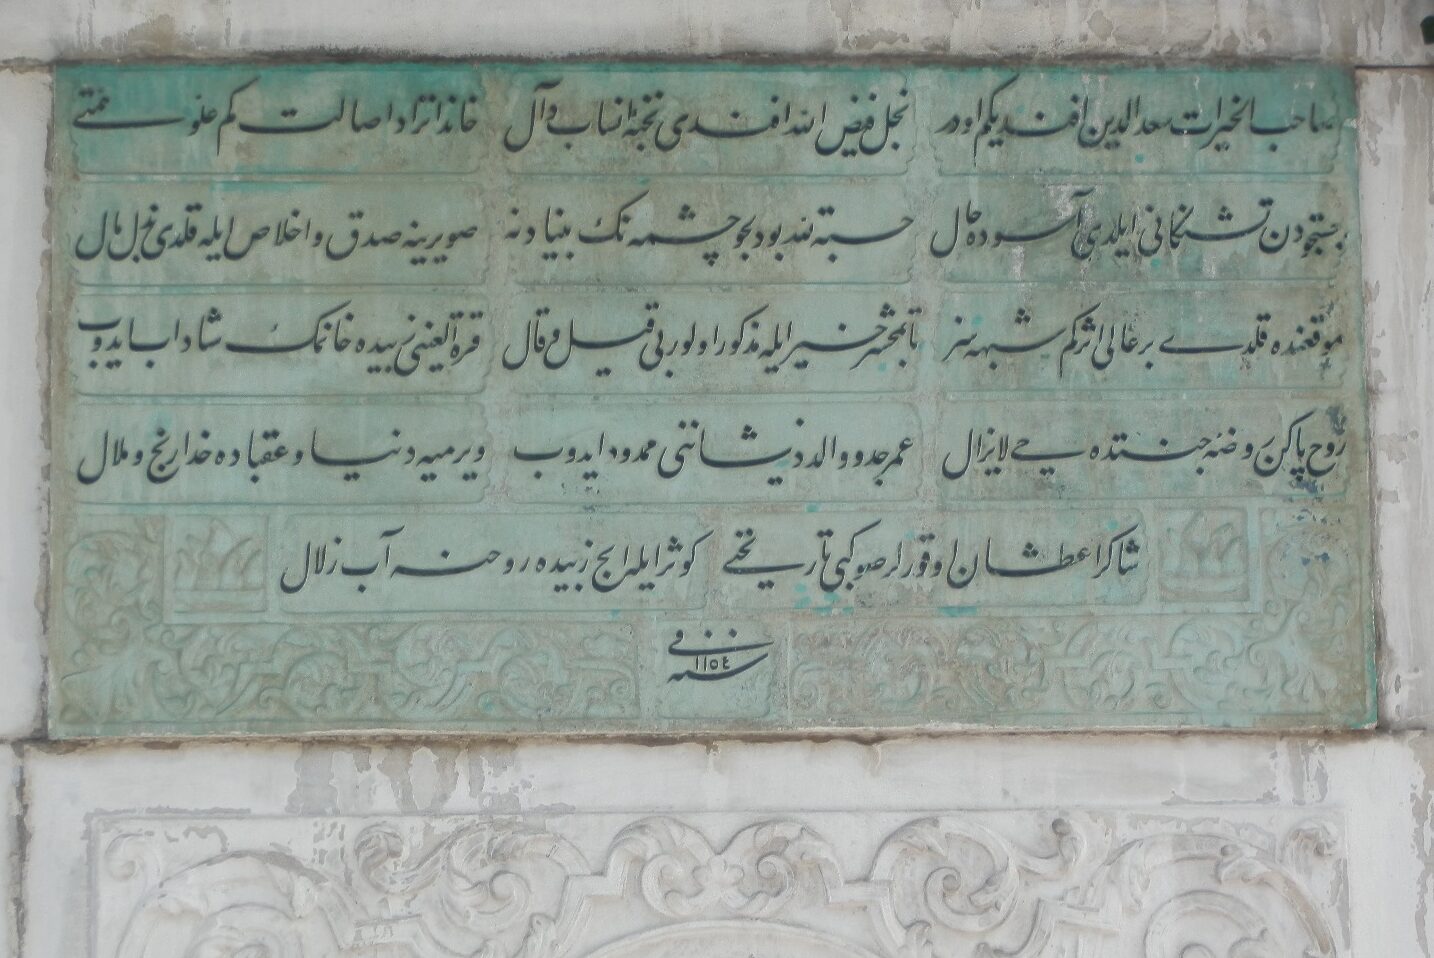 صاحب الخيرات سعد الدين افنديكم اودر نجل فيض الله افندى نخبهٔ انساب و آل خاندانزاد اصالت كم علو همتى
جستجودن تشنكانى ايلدى آسوده حال حسبة لله بو دلجو چشمه نك بنيادنه صويرينه صدق و اخلاص ايله قلدى بذل مال
موقعنده قلدى بر عالى اثر كم شبهه سز تا بمحشر خير ايله مذكور اولور بى قيل و قال قرة العينى زبيده خانمك شاداب ايدوب
روح پاكن روضهٔ جنتده حى لايزال عمر جد و والد ذيشاننى ممدود ايدوب ويرميه دنيا و عقباده خدا رنج و ملال
شاكرا عطشان اوقورلر صو كبى تاريخنى كوثر ايله ايچ زبيده روحنه آب زلال
فى
سنه ١١٥٤